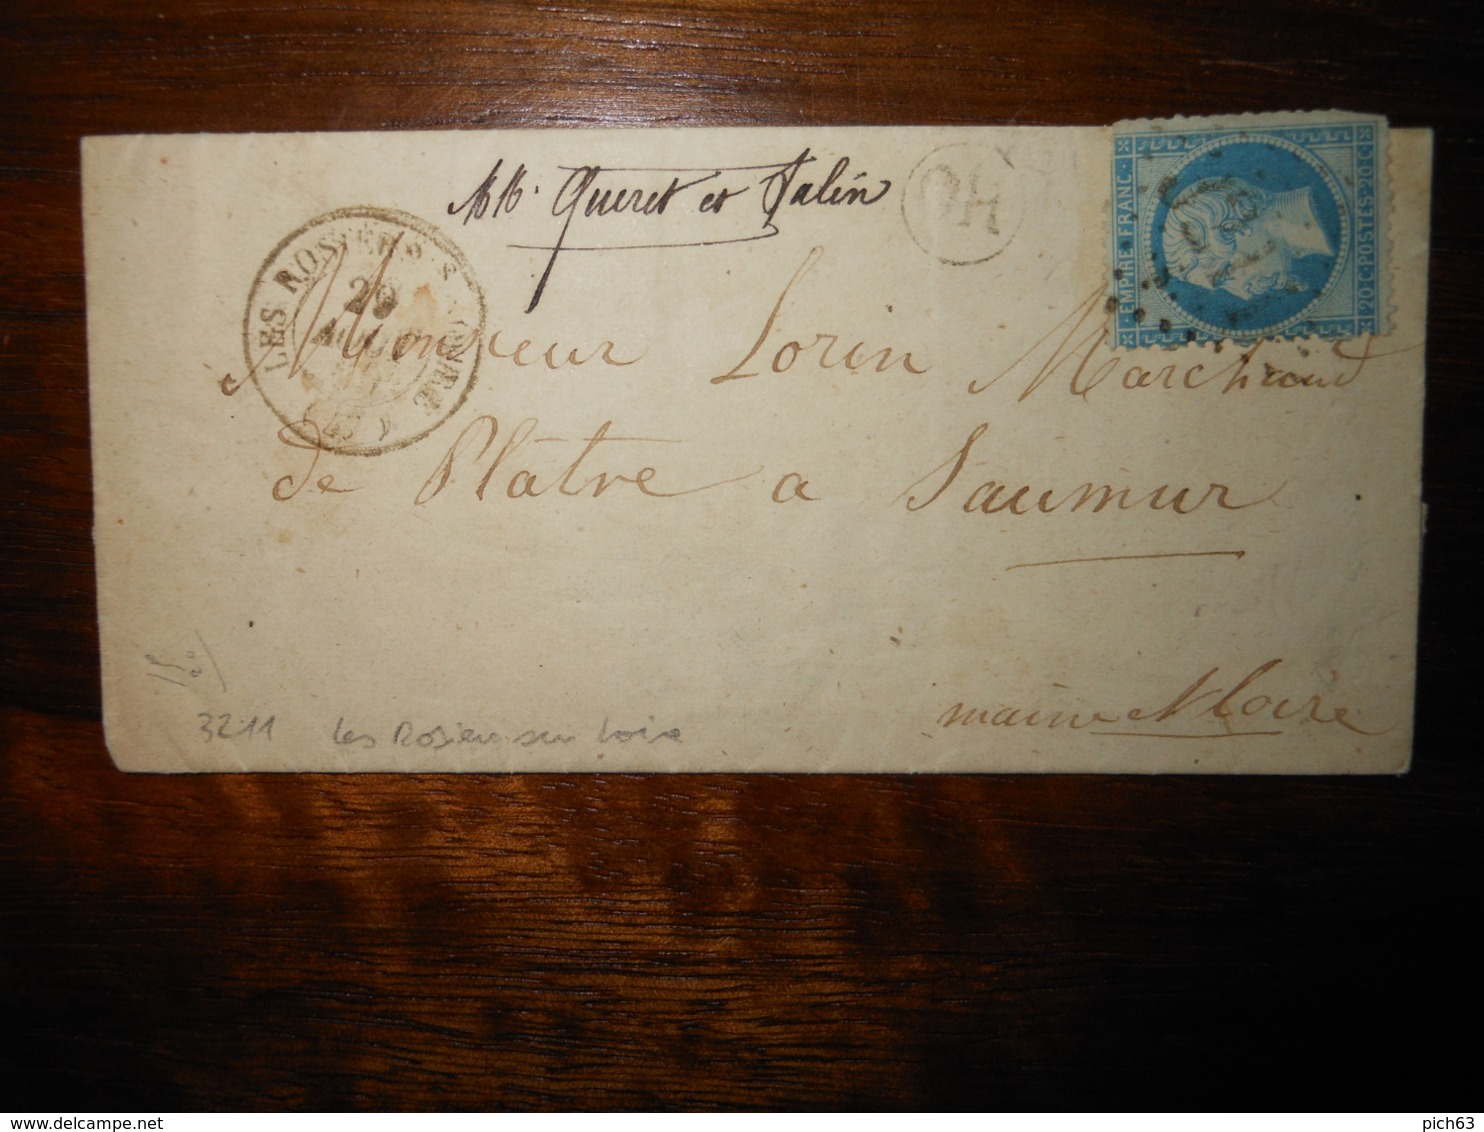 MM. Queret et Jalin
OR
EMPIRE FRANC.
20 C. POSTES 20 C.
LES ROSIERS S. LOIRE
29
AOUT
(47)
Monsieur Lorin Marchand
de Plâtre a Saumur
maine et Loire
3211 Les Rosiers sur Loire
delcampe.net
pich63